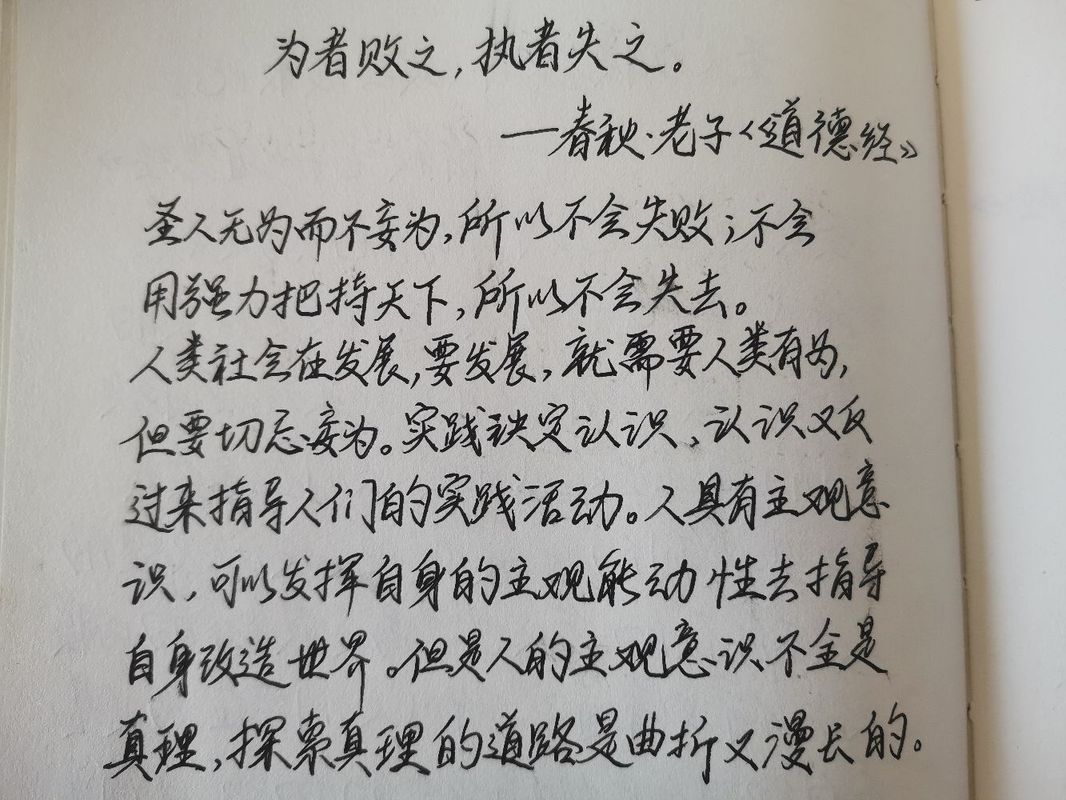 为者败之，执者失之。
—春秋·老子《道德经》
圣人无为而不妄为，所以不会失败；不会
用强力把持天下，所以不会失去。
人类社会在发展，要发展，就需要人类有为，
但要切忌妄为。实践决定认识，认识又反
过来指导人们的实践活动。人具有主观意
识，可以发挥自身的主观能动性去指导
自身改造世界。但是人的主观意识不全是
真理，探索真理的道路是曲折又漫长的。